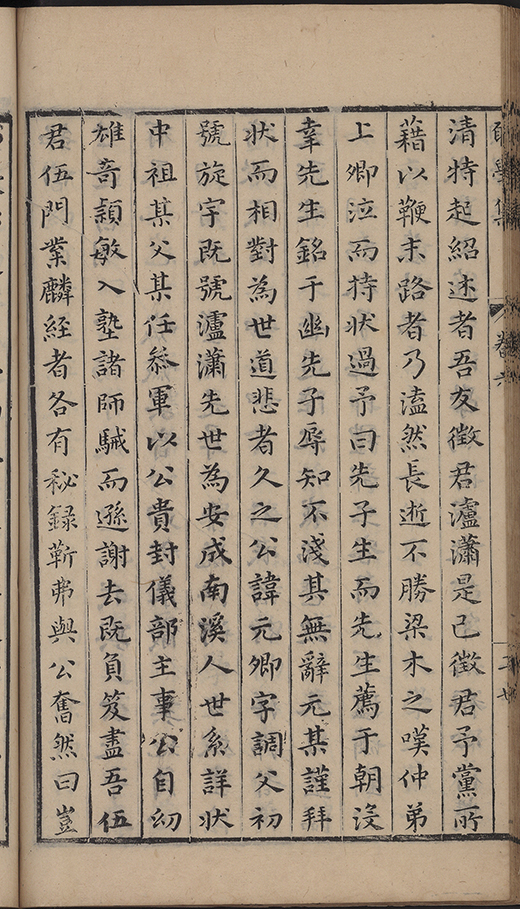 學集 卷六
清特起紹述者吾友徵君瀘瀟是已徵君予黨所
藉以鞭末路者乃溘然長逝不勝梁木之嘆仲弟
上卿泣而持狀過予曰先子生而先生薦于朝沒
幸先生銘于幽先子辱知不淺其無辭元某謹拜
狀而相對為世道悲者久之公諱元卿字調父初
號旋宇既號瀘瀟先世為安成南溪人世系詳狀
中祖某父某任叅軍以公貴封儀部主事公自幼
雄竒頴敏入塾諸師駴而遜謝去既負笈盡吾伍
君伍門業麟經者各有秘録靳弗與公奮然曰豈